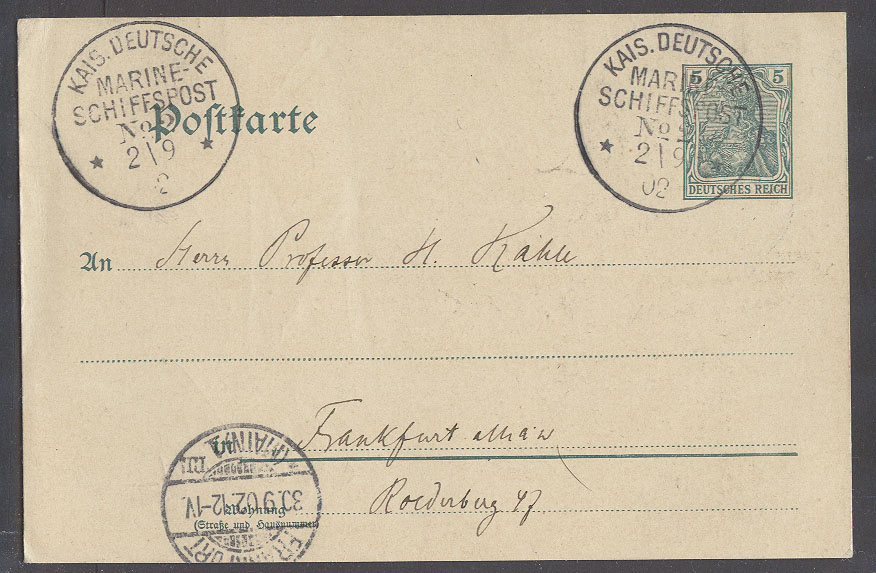 KAIS. DEUTSCHE
MARINE-
SCHIFFSPOST
No 2
2|9
2
KAIS. DEUTSCHE
MARINE-
SCHIFFSPOST
No 2
2|9
02
5 5
DEUTSCHES REICH
Postkarte
An Herrn Professor H. Kahle
in Frankfurt a Main
Roederberg 47
Wohnung
(Straße und Hausnummer)
FRANKFURT
30.9.02.12-1V.
(MAIN) 1.